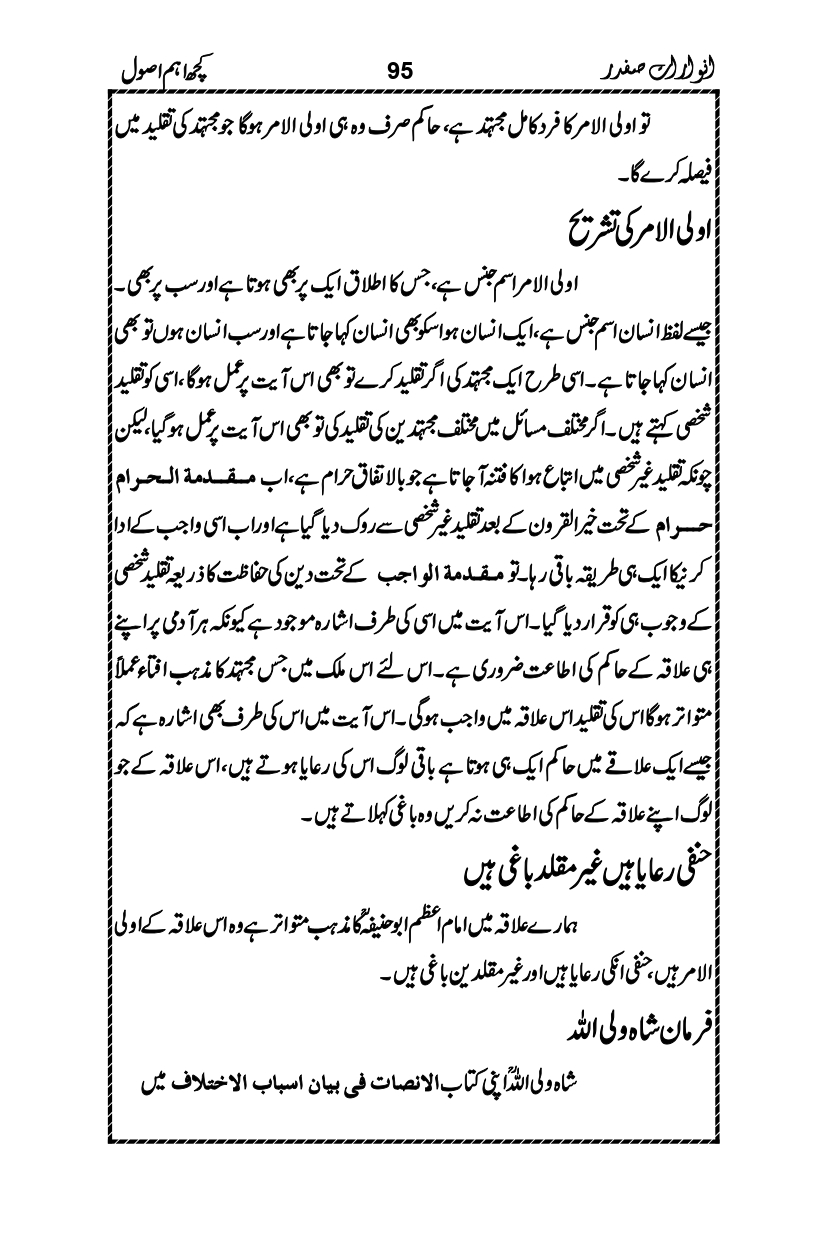 انوارات صفدر 95 کچھ اہم اصول
تو اولی الامر کا فرد کامل مجتہد ہے، حاکم صرف وہ ہی اولی الامر ہوگا جو مجتہد کی تقلید میں
فیصلہ کرے گا۔
اولی الامر کی تشریح
اولی الامر اسم جنس ہے، جس کا اطلاق ایک پر بھی ہوتا ہے اور سب پر بھی۔
جیسے لفظ انسان اسم جنس ہے، ایک انسان ہو اسکو بھی انسان کہا جاتا ہے اور سب انسان ہوں تو بھی
انسان کہا جاتا ہے۔ اسی طرح ایک مجتہد کی اگر تقلید کرے تو بھی اس آیت پر عمل ہوگا، اسی کو تقلید
شخصی کہتے ہیں۔ اگر مختلف مسائل میں مختلف مجتہدین کی تقلید کی تو بھی اس آیت پر عمل ہوگیا، لیکن
چونکہ تقلید غیر شخصی میں اتباع ہوا کا فتنہ آجاتا ہے جو بالاتفاق حرام ہے، اب مقدمة الحرام
حرام کے تحت خیر القرون کے بعد تقلید غیر شخصی سے روک دیا گیا ہے اور اب اسی واجب کے ادا
کرنیکا ایک ہی طریقہ باقی رہا۔ تو مقدمة الواجب کے تحت دین کی حفاظت کا ذریعہ تقلید شخصی
کے وجوب ہی کو قرار دیا گیا۔ اس آیت میں اسی کی طرف اشارہ موجود ہے کیونکہ ہر آدمی پر اپنے
ہی علاقہ کے حاکم کی اطاعت ضروری ہے۔ اس لئے اس ملک میں جس مجتہد کا مذہب افتاء عملاً
متواتر ہوگا اس کی تقلید اس علاقہ میں واجب ہوگی۔ اس آیت میں اس کی طرف بھی اشارہ ہے کہ
جیسے ایک علاقے میں حاکم ایک ہی ہوتا ہے باقی لوگ اس کی رعایا ہوتے ہیں، اس علاقہ کے جو
لوگ اپنے علاقہ کے حاکم کی اطاعت نہ کریں وہ باغی کہلاتے ہیں۔
حنفی رعایا ہیں غیر مقلد باغی ہیں
ہمارے علاقہ میں امام اعظم ابو حنیفہؒ کا مذہب متواتر ہے وہ اس علاقہ کے اولی
الامر ہیں، حنفی انکی رعایا ہیں اور غیر مقلدین باغی ہیں۔
فرمان شاہ ولی اللہ
شاہ ولی اللہؒ اپنی کتاب الانصات فی بیان اسباب الاختلاف میں